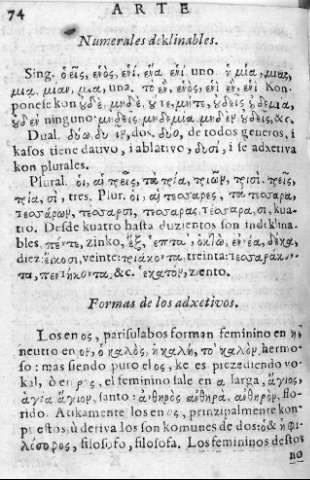 74 ARTE
Numerales deklinables.
Sing. ὁ εἷς, ἑνός, ἑνί, ἕνα ἑνί uno. ἡ μία, μιας,
μια. μιαν, μια, una. το ἕν, ἑνός, ἑνί ἕν, ἑνί Kon-
ponese kon
ninguno
Dual. δύω, δυ dos. δυο, de todos generos, i
kasos tiene dativo, i ablativo, δυσί, i se adxetiva
kon plurales.
Plural. οἱ, αἱ τρεῖς, τὰ τρία, τριῶν, τρισί. τρεῖς,
τρία, σι, tres. Plur. οἱ, αἱ τεσαρες, τα τεσαρα,
τεσάρων, τεσαρσι, τεσαρας τεσαρα, σι, kua-
tro. Desde kuatro hasta duzientos son indeklina-
bles. πέντε, zinko, ἕξ, ἑπτα, ὀκτω, εν εα, δέκα,
diez: εἴκοσι, veinte: τριάκοντα treinta: τεσαρακον-
τα, πεντήκοντα, &c. ἑκατον, ziento.
Formas de los adxetivos.
Los en ος, parisulabos forman feminino en η,
neutro en ον, ὁ καλὸς, ἡ καλὴ, το καλὸν, hermo-
so: mas siendo puro el ος, ke es prezediendo vo-
kal, ò en ρος, el feminino sale en α larga, ἅγιος,
ἁγία ἅγιον, santo: ἀνθηρὸς ἀνθηρά, ἀνθηρον, flo-
rido. Atikamente los en ος, prinzipalmente kon-
puestos, ù deriva los son komunes de dos: ὁ & ἡ φι-
λόσοφος, filosofo, filosofa. Los femininos destos
no